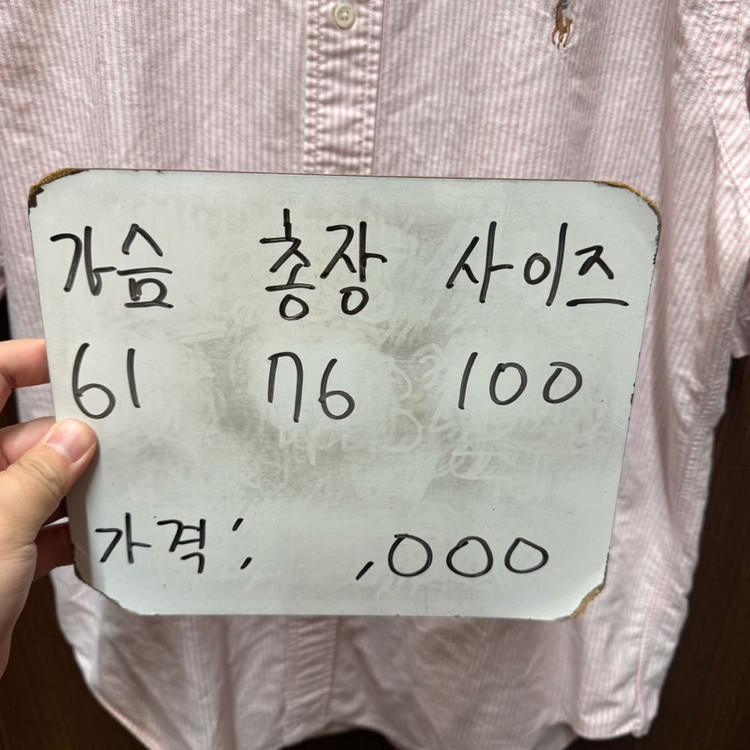 가슴 총장 사이즈
61 76 100
가격: ,000